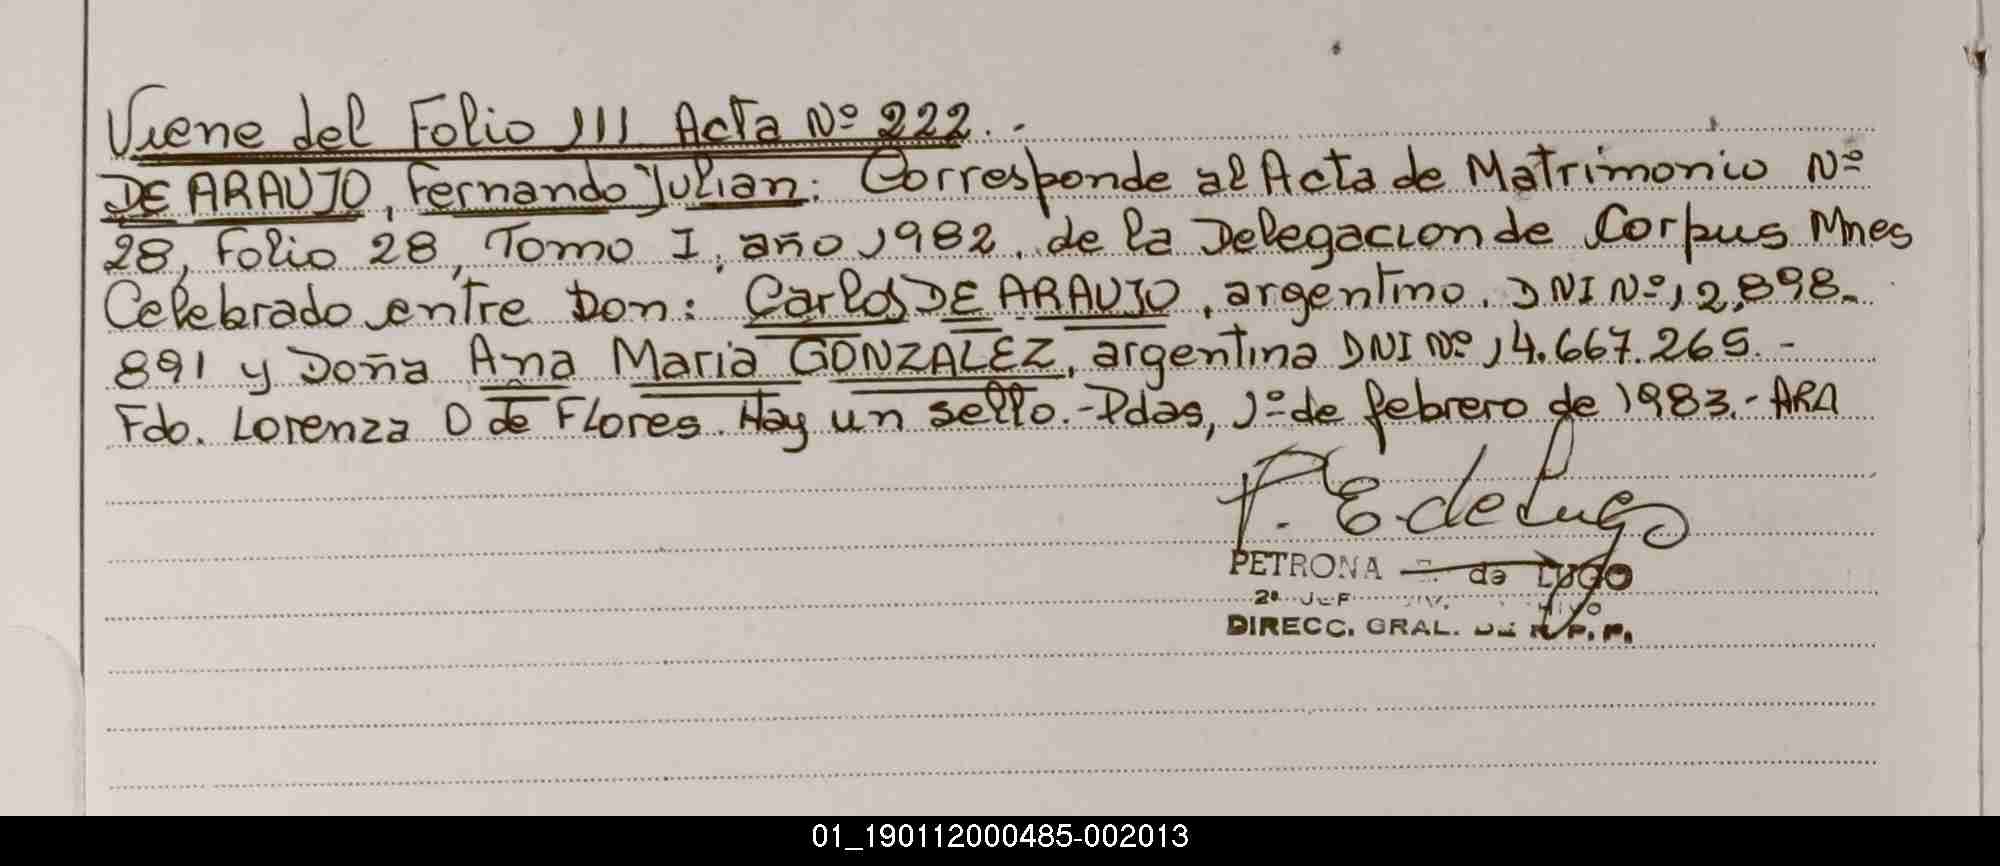 Viene del Folio 111 Acta Nº 222.-
DE ARAUJO, Fernando Julian: Corresponde al Acta de Matrimonio Nº
28, Folio 28, Tomo I, año 1982, de la Delegacion de Corpus Mnes
Celebrado entre Don: Carlos DE ARAUJO, argentino, DNI Nº 12,898.
891 y Doña Ana Maria GONZALEZ, argentina DNI Nº 14.667.265.-
Fdo. Lorenza D de FLores. Hay un sello.-Pdas, 1º de febrero de 1983.- ARA
P. E. de Lugo
PETRONA E. de LUGO
2º JEF
DIRECC. GRAL. DE R. P. P.
01_190112000485-002013